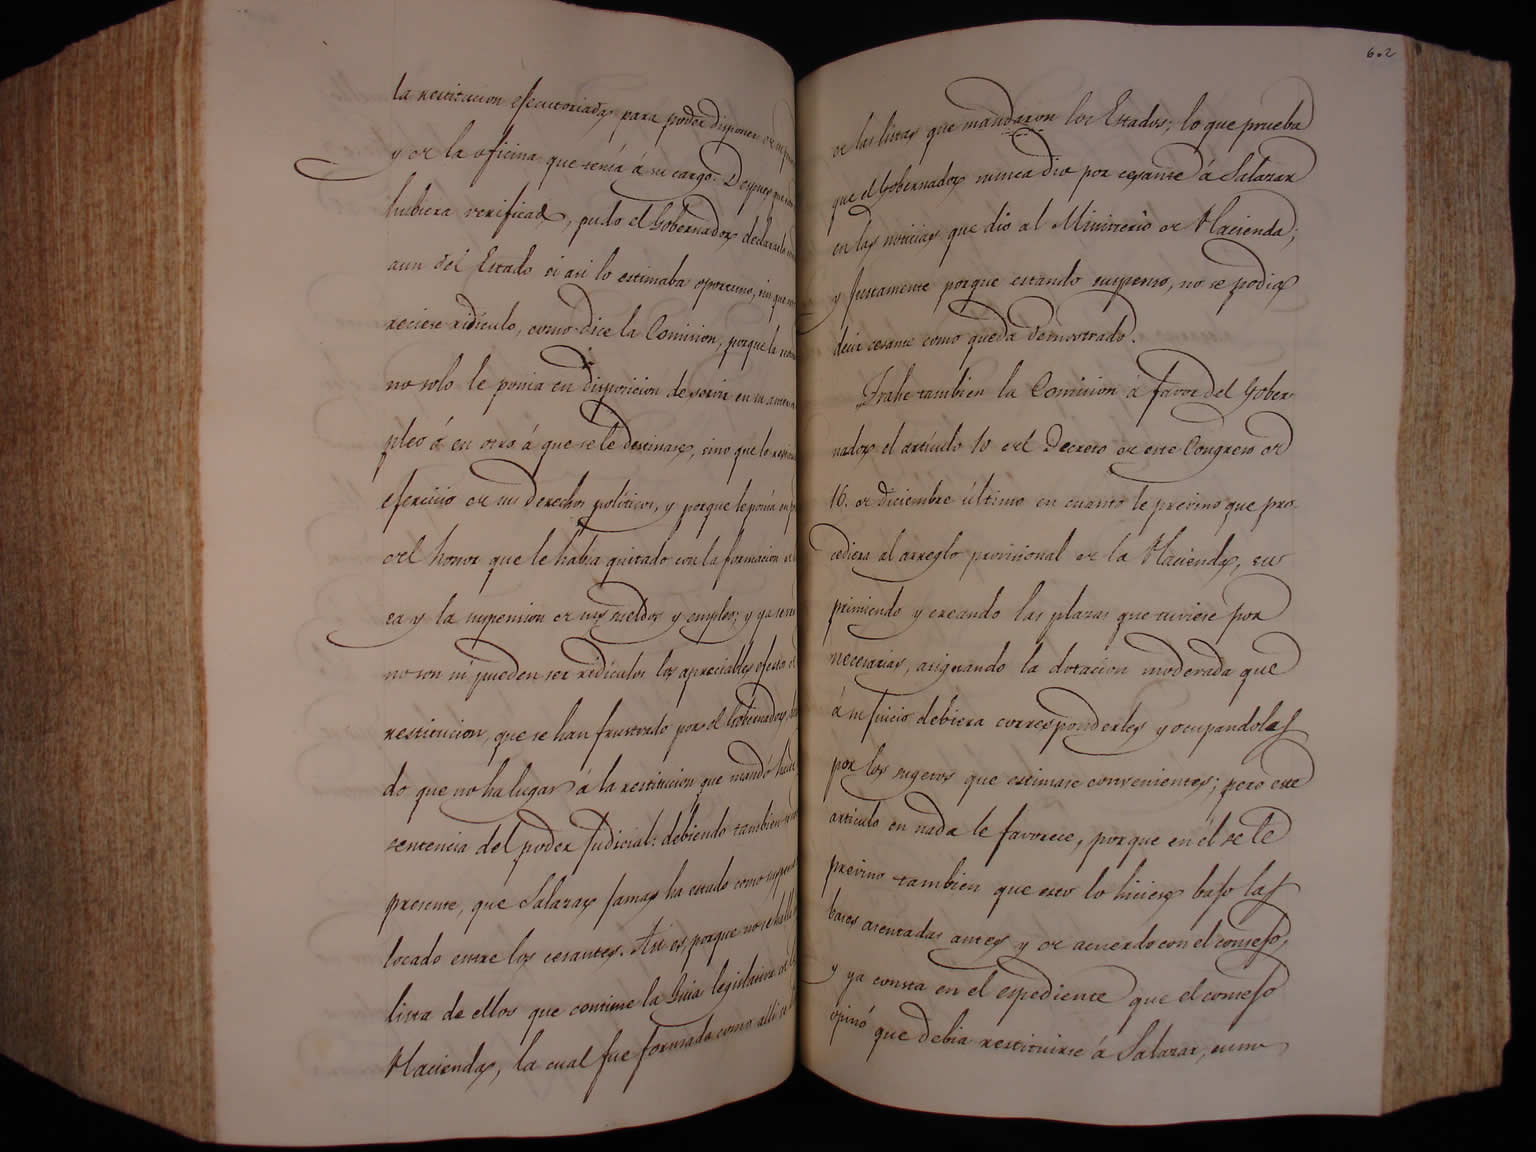 la restitucion ejecutoriada para poder disponer de
y de la oficina que tenía á su cargo. Despues que
hubiera verificado, pudo el Gobernador declararlo
aun del Estado si asi lo estimaba oportuno, sin que
reciese ridículo, como dice la Comision, porque la
no solo le ponia en disposicion de servir en su
pleo ó en otro á que se le destinase, sino que lo
ejercicio de sus derechos políticos, y porque le ponía en
del honor que le habia quitado con la formacion
ca y la suspension de sus sueldos y empleo; y ya se
no son ni pueden ser ridículos los apreciables efectos
restitucion, que se han frustrado por el Gobernador,
do que no ha lugar á la restitucion que mandó
sentencia del poder Judicial: debiendo tambien
presente, que Salazar jamas ha estado como
locado entre los cesantes. Asi es, porque no se halla
lista de ellos que contiene la Guia legislativa de
Hacienda, la cual fue formada como alli se
602
de las listas que mandaron los Estados; lo que prueba
que el Gobernador nunca dio por cesante á Salazar
en las noticias que dió al Ministerio de Hacienda;
y justamente porque estando suspenso, no se podia
decir cesante como queda demostrado.
Trahe tambien la Comision a favor del Gober-
nador el artículo 10 del Decreto de este Congreso de
16. de diciembre último en cuanto le previno que pro-
cediera al arreglo provisional de la Hacienda, su
primiendo y creando las plazas que tuviese por
necesarias, asignando la dotacion moderada que
á su juicio debiera corresponderles y ocupandolas
por los sugetos que estimase convenientes; pero este
artículo en nada le favorece, porque en él se le
previno tambien que esto lo hiciese bajo las
bases asentadas antes y de acuerdo con el consejo,
y ya consta en el espediente que el consejo
opinó que debia restituirse á Salazar, en su